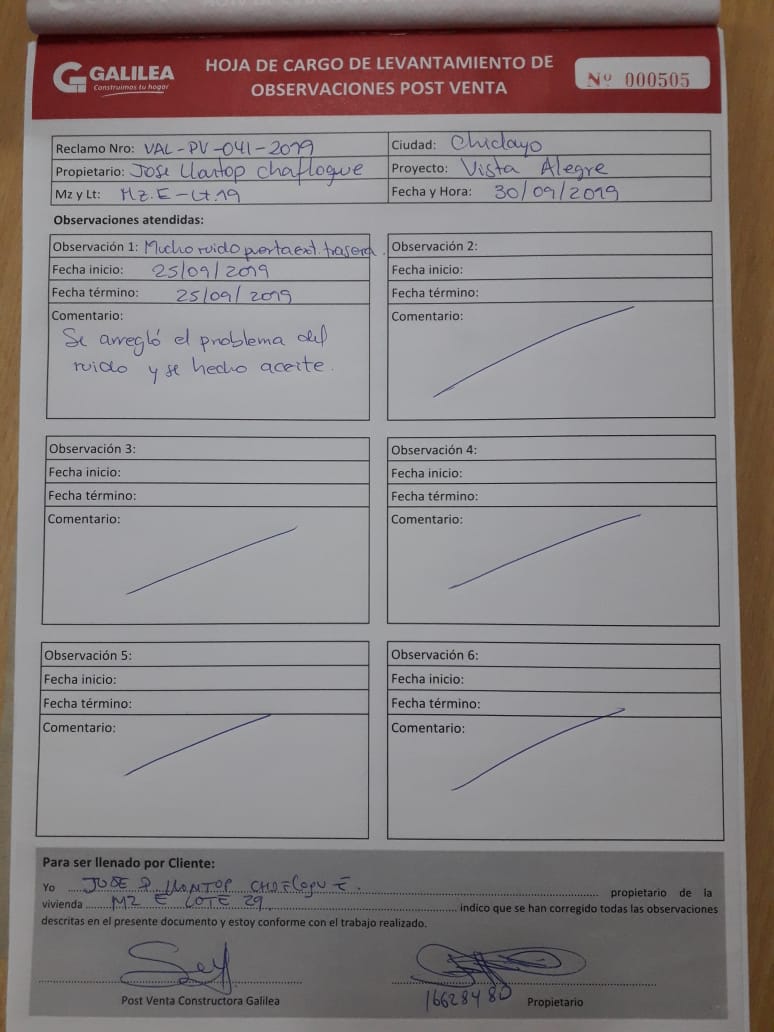 GALILEA
Construimos tu hogar
HOJA DE CARGO DE LEVANTAMIENTO DE
OBSERVACIONES POST VENTA
Nº 000505
Reclamo Nro: VAL-PV-041-2019
Ciudad: Chiclayo
Propietario: Jose Llontop Chafloque
Proyecto: Vista Alegre
Mz y Lt: Mz.E-Lt.19
Fecha y Hora: 30/09/2019
Observaciones atendidas:
Observación 1: Mucho ruido puerta ext. trasera.
Fecha inicio: 25/09/2019
Fecha término: 25/09/2019
Comentario:
Se arregló el problema del
ruido y se hecho aceite.
Observación 2:
Fecha inicio:
Fecha término:
Comentario:
Observación 3:
Fecha inicio:
Fecha término:
Comentario:
Observación 4:
Fecha inicio:
Fecha término:
Comentario:
Observación 5:
Fecha inicio:
Fecha término:
Comentario:
Observación 6:
Fecha inicio:
Fecha término:
Comentario:
Para ser llenado por Cliente:
Yo JOSE LLONTOP CHAFLOQUE. propietario de la
vivienda MZ E LOTE indico que se han corregido todas las observaciones
descritas en el presente documento y estoy conforme con el trabajo realizado.
16628480
Post Venta Constructora Galilea
Propietario